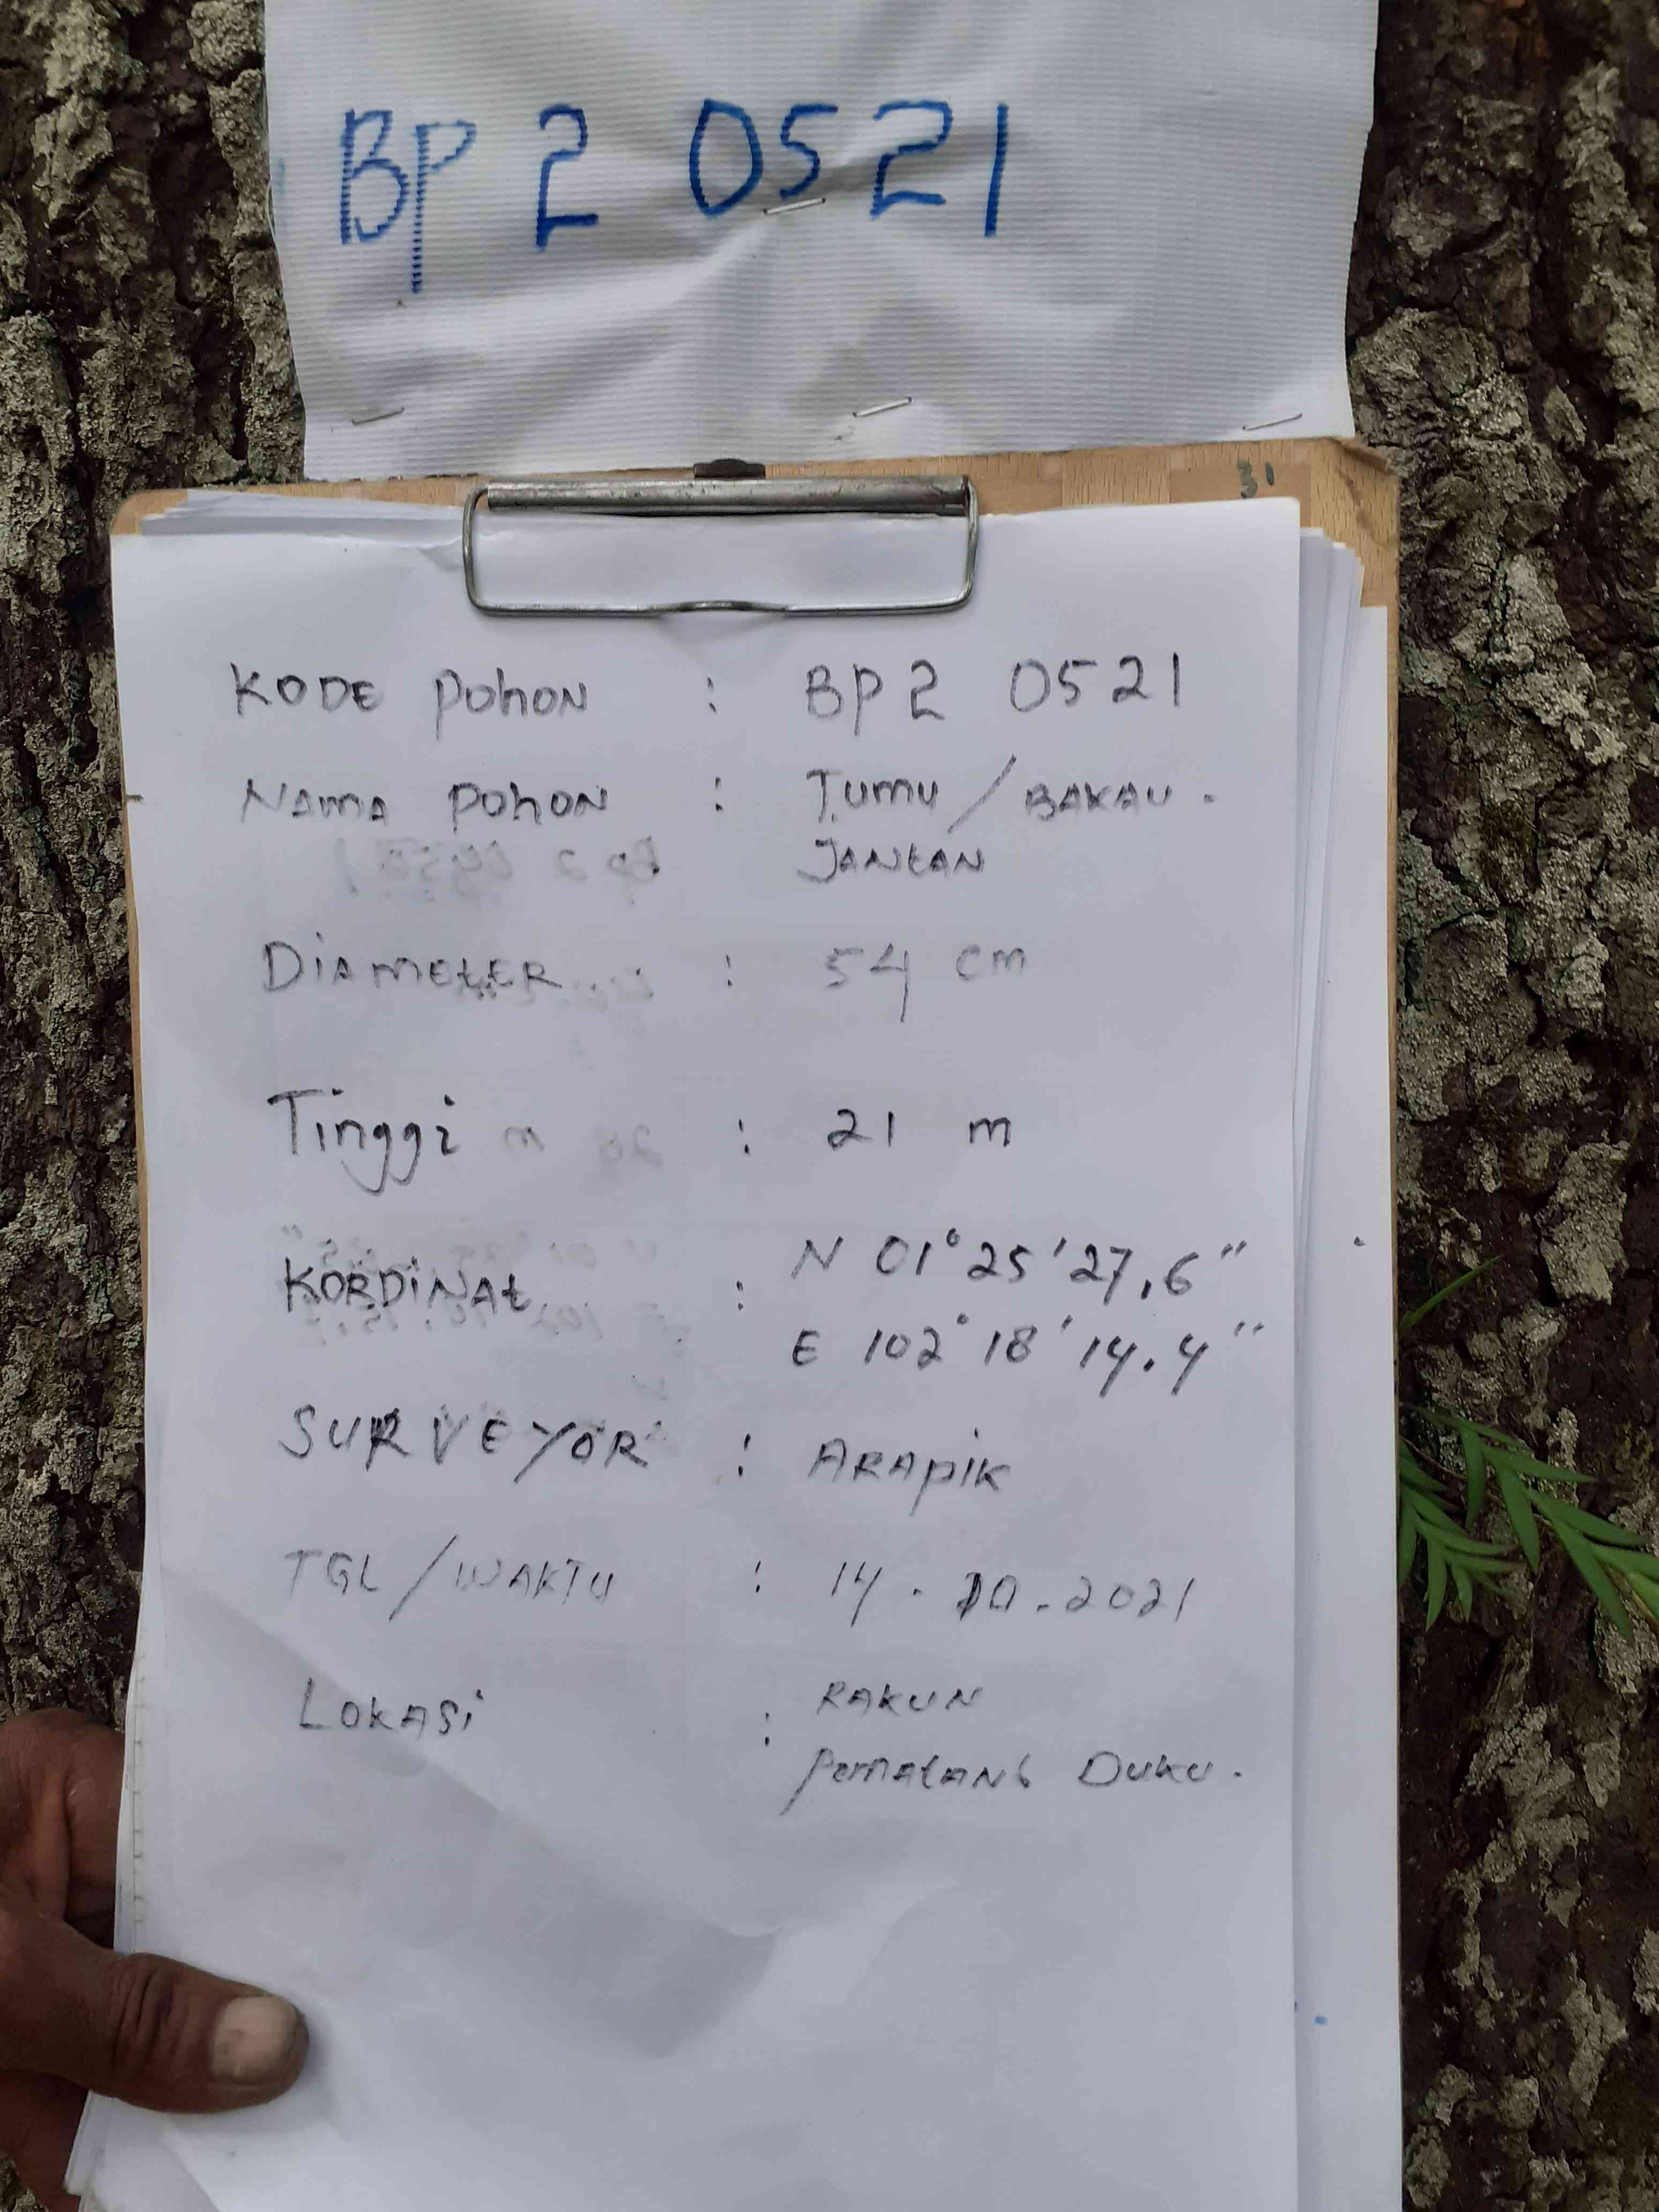 BP 2 0521
31
KODE pohon : BP2 0521
NAMA pohon : Tumu / BAKAU.
JANtAN
DiAMEtER : 54 cm
Tinggi : 21 m
KORDiNAt : N 01° 25' 27,6"
E 102° 18' 14.4"
SURVEYOR : ARApiK
TGL/WAKTU : 14. 10. 2021
LOKASi : RAKUN
PEMAtANG DUKU.